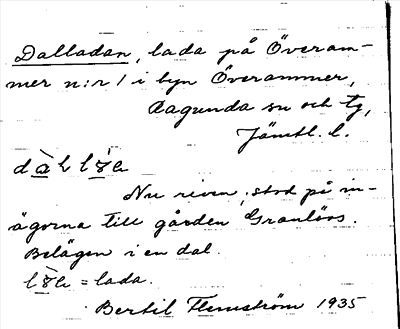 Dalladan, lada på Överam-
mer n:r 1 i byn Överammer,
Ragunda sn och tg,
Jämtl. l.
Nu riven; stod på in-
ägorna till gården Granlövs.
Belägen i en dal.
= lada.
Bertil Flemström 1935